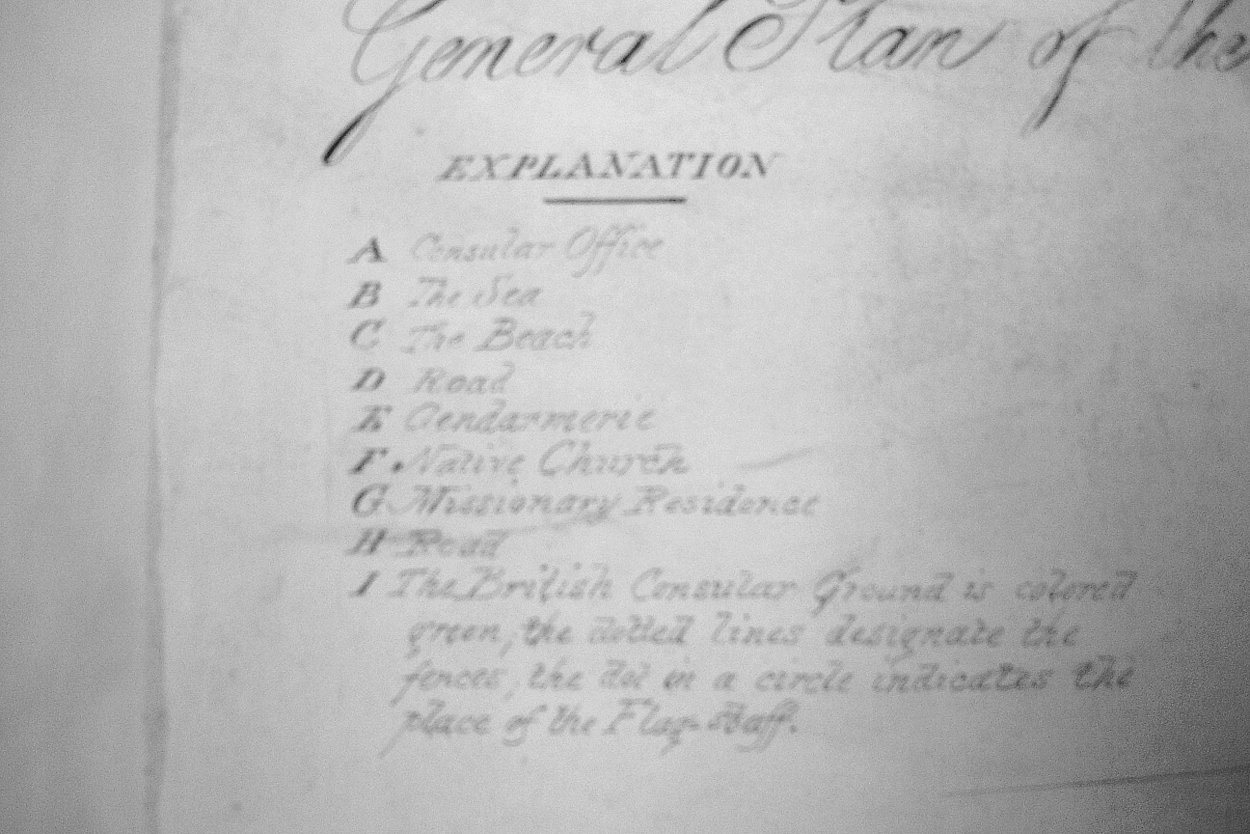 General Plan of the
EXPLANATION
A Consular Office
B The Sea
C The Beach
D Road
E Gendarmerie
F. Native Church
G Missionary Residence
H Road
I The British Consular Ground is colored
green, the dotted lines designate the
fences, the dot in a circle indicates the
place of the Flag-staff.